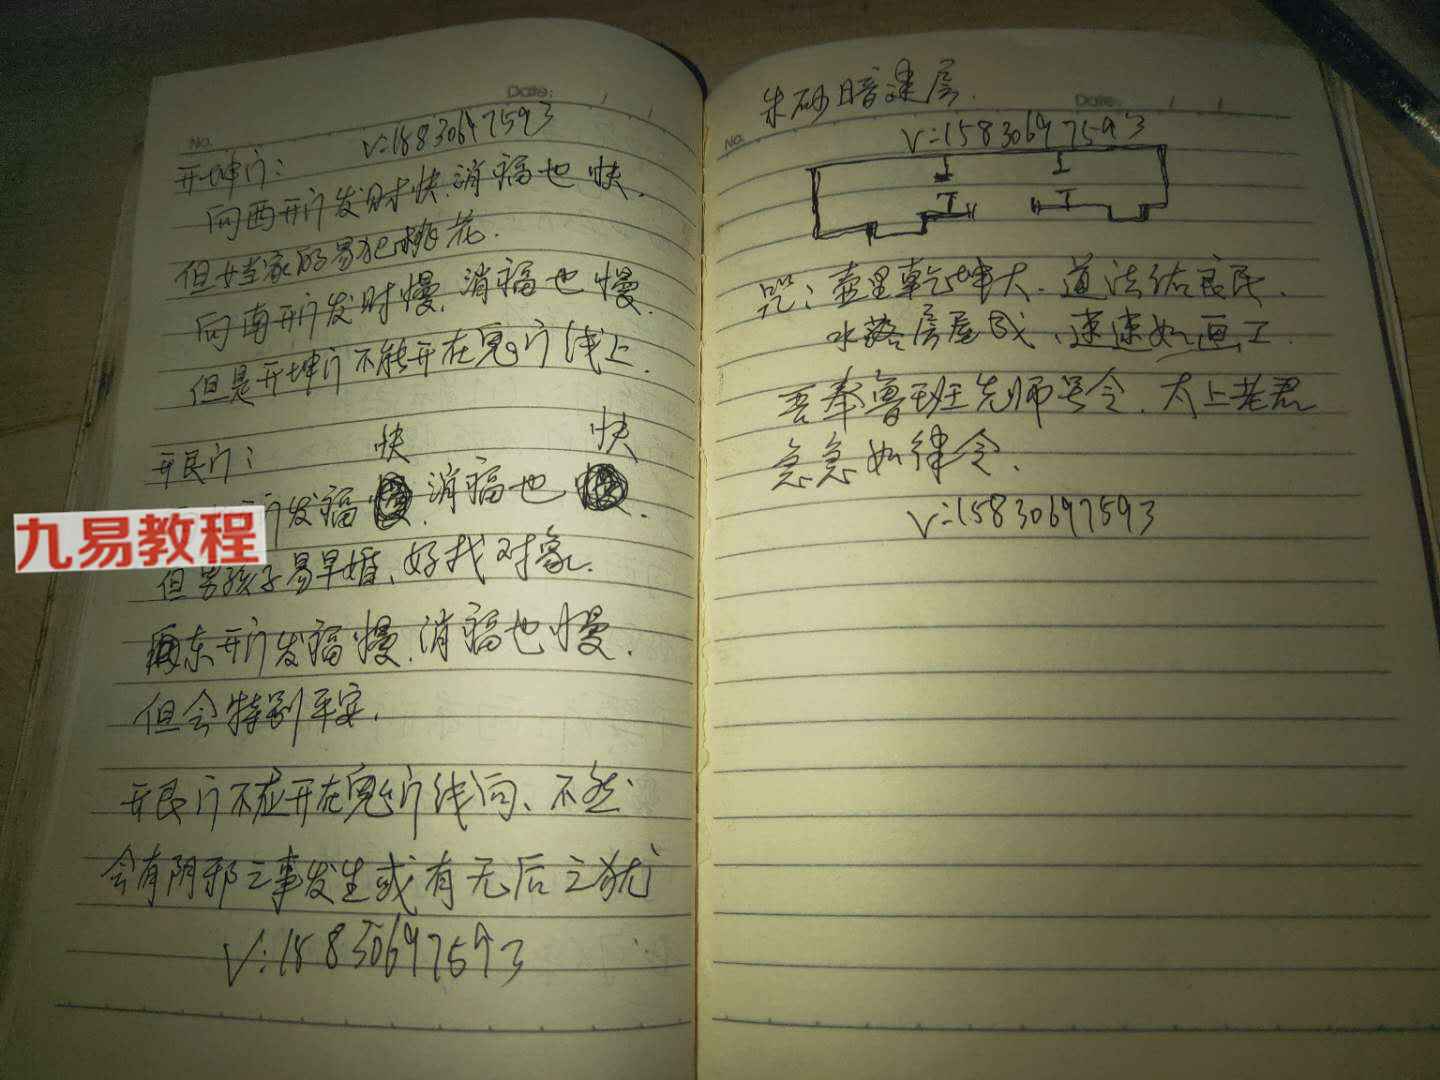 Date:
No.
V:15830697593
开坤门:
向西开门发财快.消福也快.
但女主家的易犯桃花.
向南开门发财慢.消福也慢.
但是开坤门不能开在鬼门线上.
开艮门:
快 快
门发福 消福也
九易教程
但男孩子易早婚、好找对象.
东开门发福慢.消福也慢.
但会特别平安.
开艮门不应开在鬼门线向、不然
会有阴邪之事发生或有无后之犹
V:15830697593
朱砂暗建房.
Date:
No.
V:15830697593
咒:壶里乾坤大.道法佑良民.
水落房屋成、速速如画工.
吾奉鲁班先师号令.太上老君
急急如律令.
V:15830697593